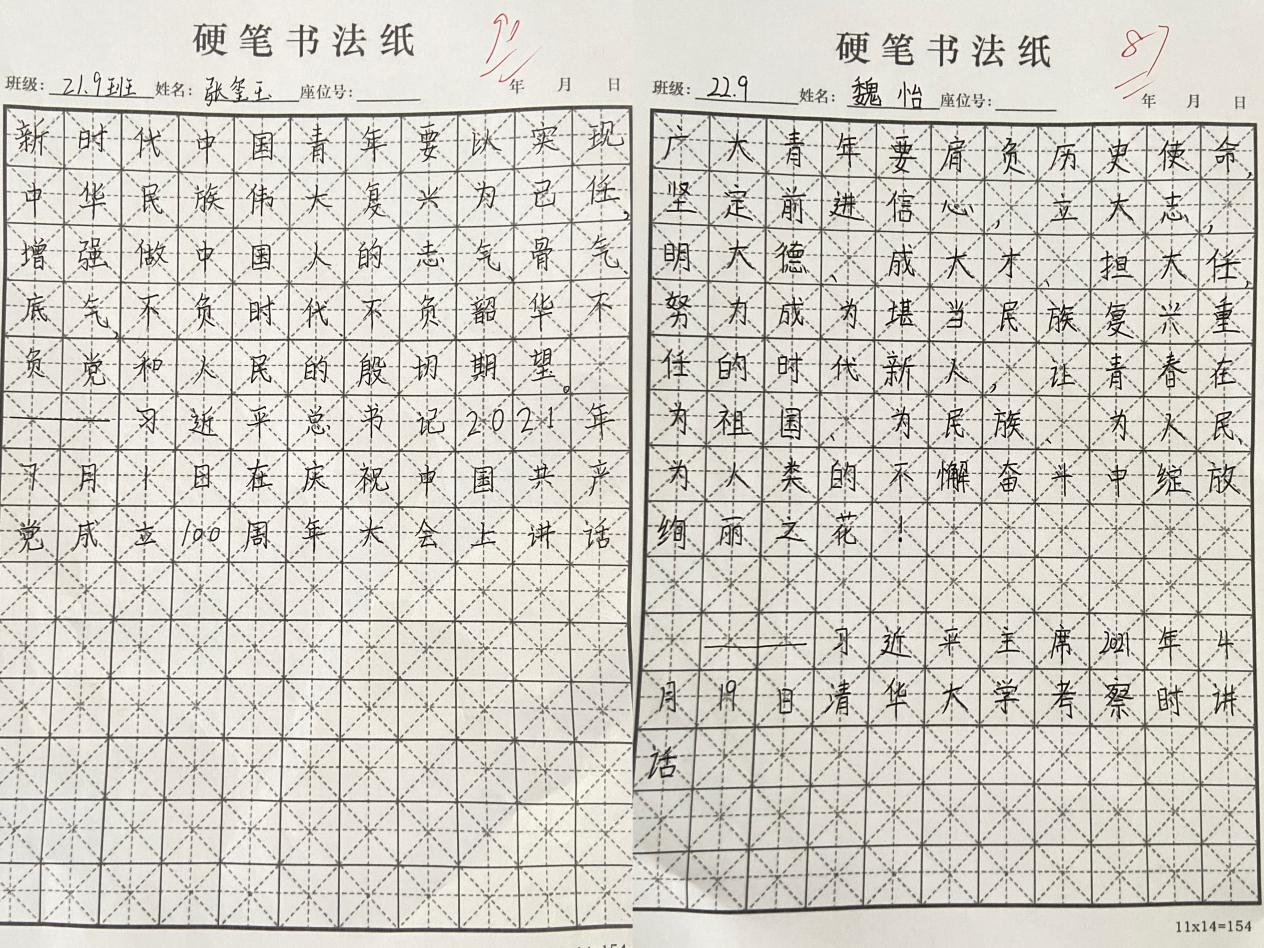 硬笔书法纸
91
班级：21.9班 姓名：张玺玉 座位号： 年 月 日
新时代中国青年要以实现
中华民族伟大复兴为己任，
增强做中国人的志气、骨气
底气，不负时代不负韶华不
负党和人民的殷切期望。
——习近平总书记2021年
7月1日在庆祝中国共产
党成立100周年大会上讲话
硬笔书法纸
87
班级：22.9 姓名：魏怡 座位号： 年 月 日
广大青年要肩负历史使命，
坚定前进信心，立大志，
明大德、成大才、担大任，
努为成为堪当民族复兴重
任的时代新人，让青春在
为祖国、为民族、为人民、
为人类的不懈奋斗中绽放
绚丽之花！
——习近平主席2021年4
月19日清华大学考察时讲
话
11x14=154